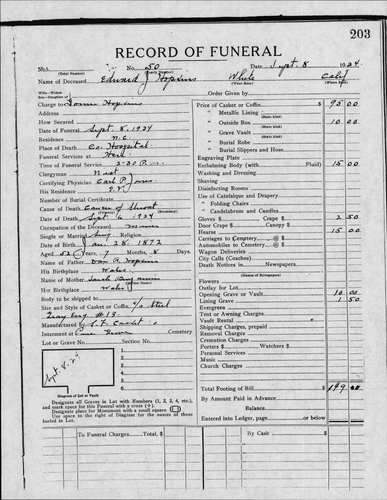 203
RECORD OF FUNERAL
No. 50 Date Sept. 8, 1924
(Total Number) (Yearly Number)
Name of Deceased Edward J Hopkins White Calif
Order Given by
Charge to Hopkins
Address
How Secured
Date of Funeral Sept. 8, 1924
Residence N.C.
Place of Death Co. Hospital
Funeral Services at Here
Time of Funeral Service 2:30 P.M.
Clergyman West
Certifying Physician Carl P. Jones
His Residence G.V.
Number of Burial Certificate
Cause of Death Cancer of Throat
Date of Death Sept. 6 1924
Occupation of the Deceased Miner
Single or Married Religion
Date of Birth Jan. 28, 1872
Aged 52 Years 7 Months 8 Days
Name of Father Hopkins
His Birthplace Wales
Name of Mother Sarah
Her Birthplace Wales
Body to be shipped to
Size and Style of Casket or Coffin
#13
Manufactured by
Interment at Pine Grove Cemetery
Lot or Grave No. Section No.
1
2
3
4
5
6
Diagram of Lot or Vault
Designate all Graves in Lot with Numbers (1, 2, 3, 4, etc.),
and mark space for this Funeral with a cross (+).
Designate place for Monument with a small square
Use space to the right of Diagram for the names of those
buried in Lot.
Price of Casket or Coffin $ 95 00
" Metallic Lining
" Outside Box 10 00
" Grave Vault
" Burial Robe
" Burial Slippers and Hose
Engraving Plate
Embalming Body (with Fluid) 15 00
Washing and Dressing
Shaving
Disinfecting Rooms
Use of Catafalque and Drapery
" Folding Chairs
" Candelabrum and Candles
Gloves $ Crape $ 2 50
Door Crape $ Canopy $
Hearse 15 00
Carriages to Cemetery @
Automobiles to Cemetery @
Wagon Deliveries
City Calls (Coaches)
Death Notices in Newspapers
Flowers
Outlay for Lot
Opening Grave or Vault 10 00
Lining Grave 1 50
Evergreen
Tent or Awning Charges
Vault Rental
Shipping Charges, prepaid
Removal Charges
Cremation Charges
Porters $ Watchers $
Personal Services
Music
Church Charges
Total Footing of Bill $ 149 00
By Amount Paid in Advance
Balance
Entered into Ledger, page or below
To Funeral Charges Total $
Interest $
By Cash $